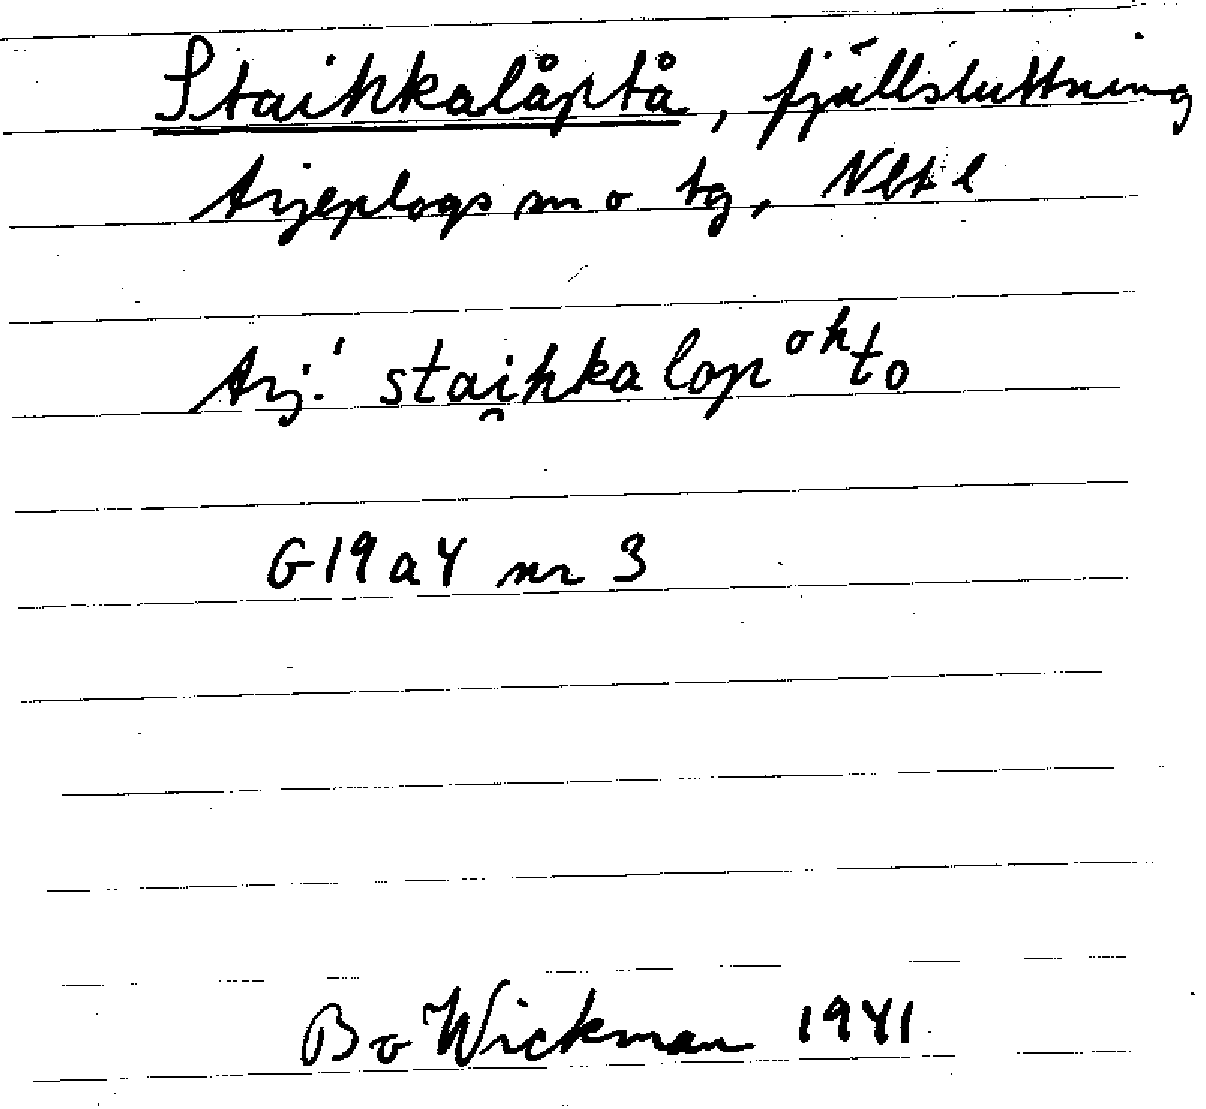 Staihkalåptå, fjällsluttning
Arjeplogs sn o tg, Nbt l
Arj. ˈstai̯hkalopᵒʰto
G19a4 nr 3
Bo Wickman 1941